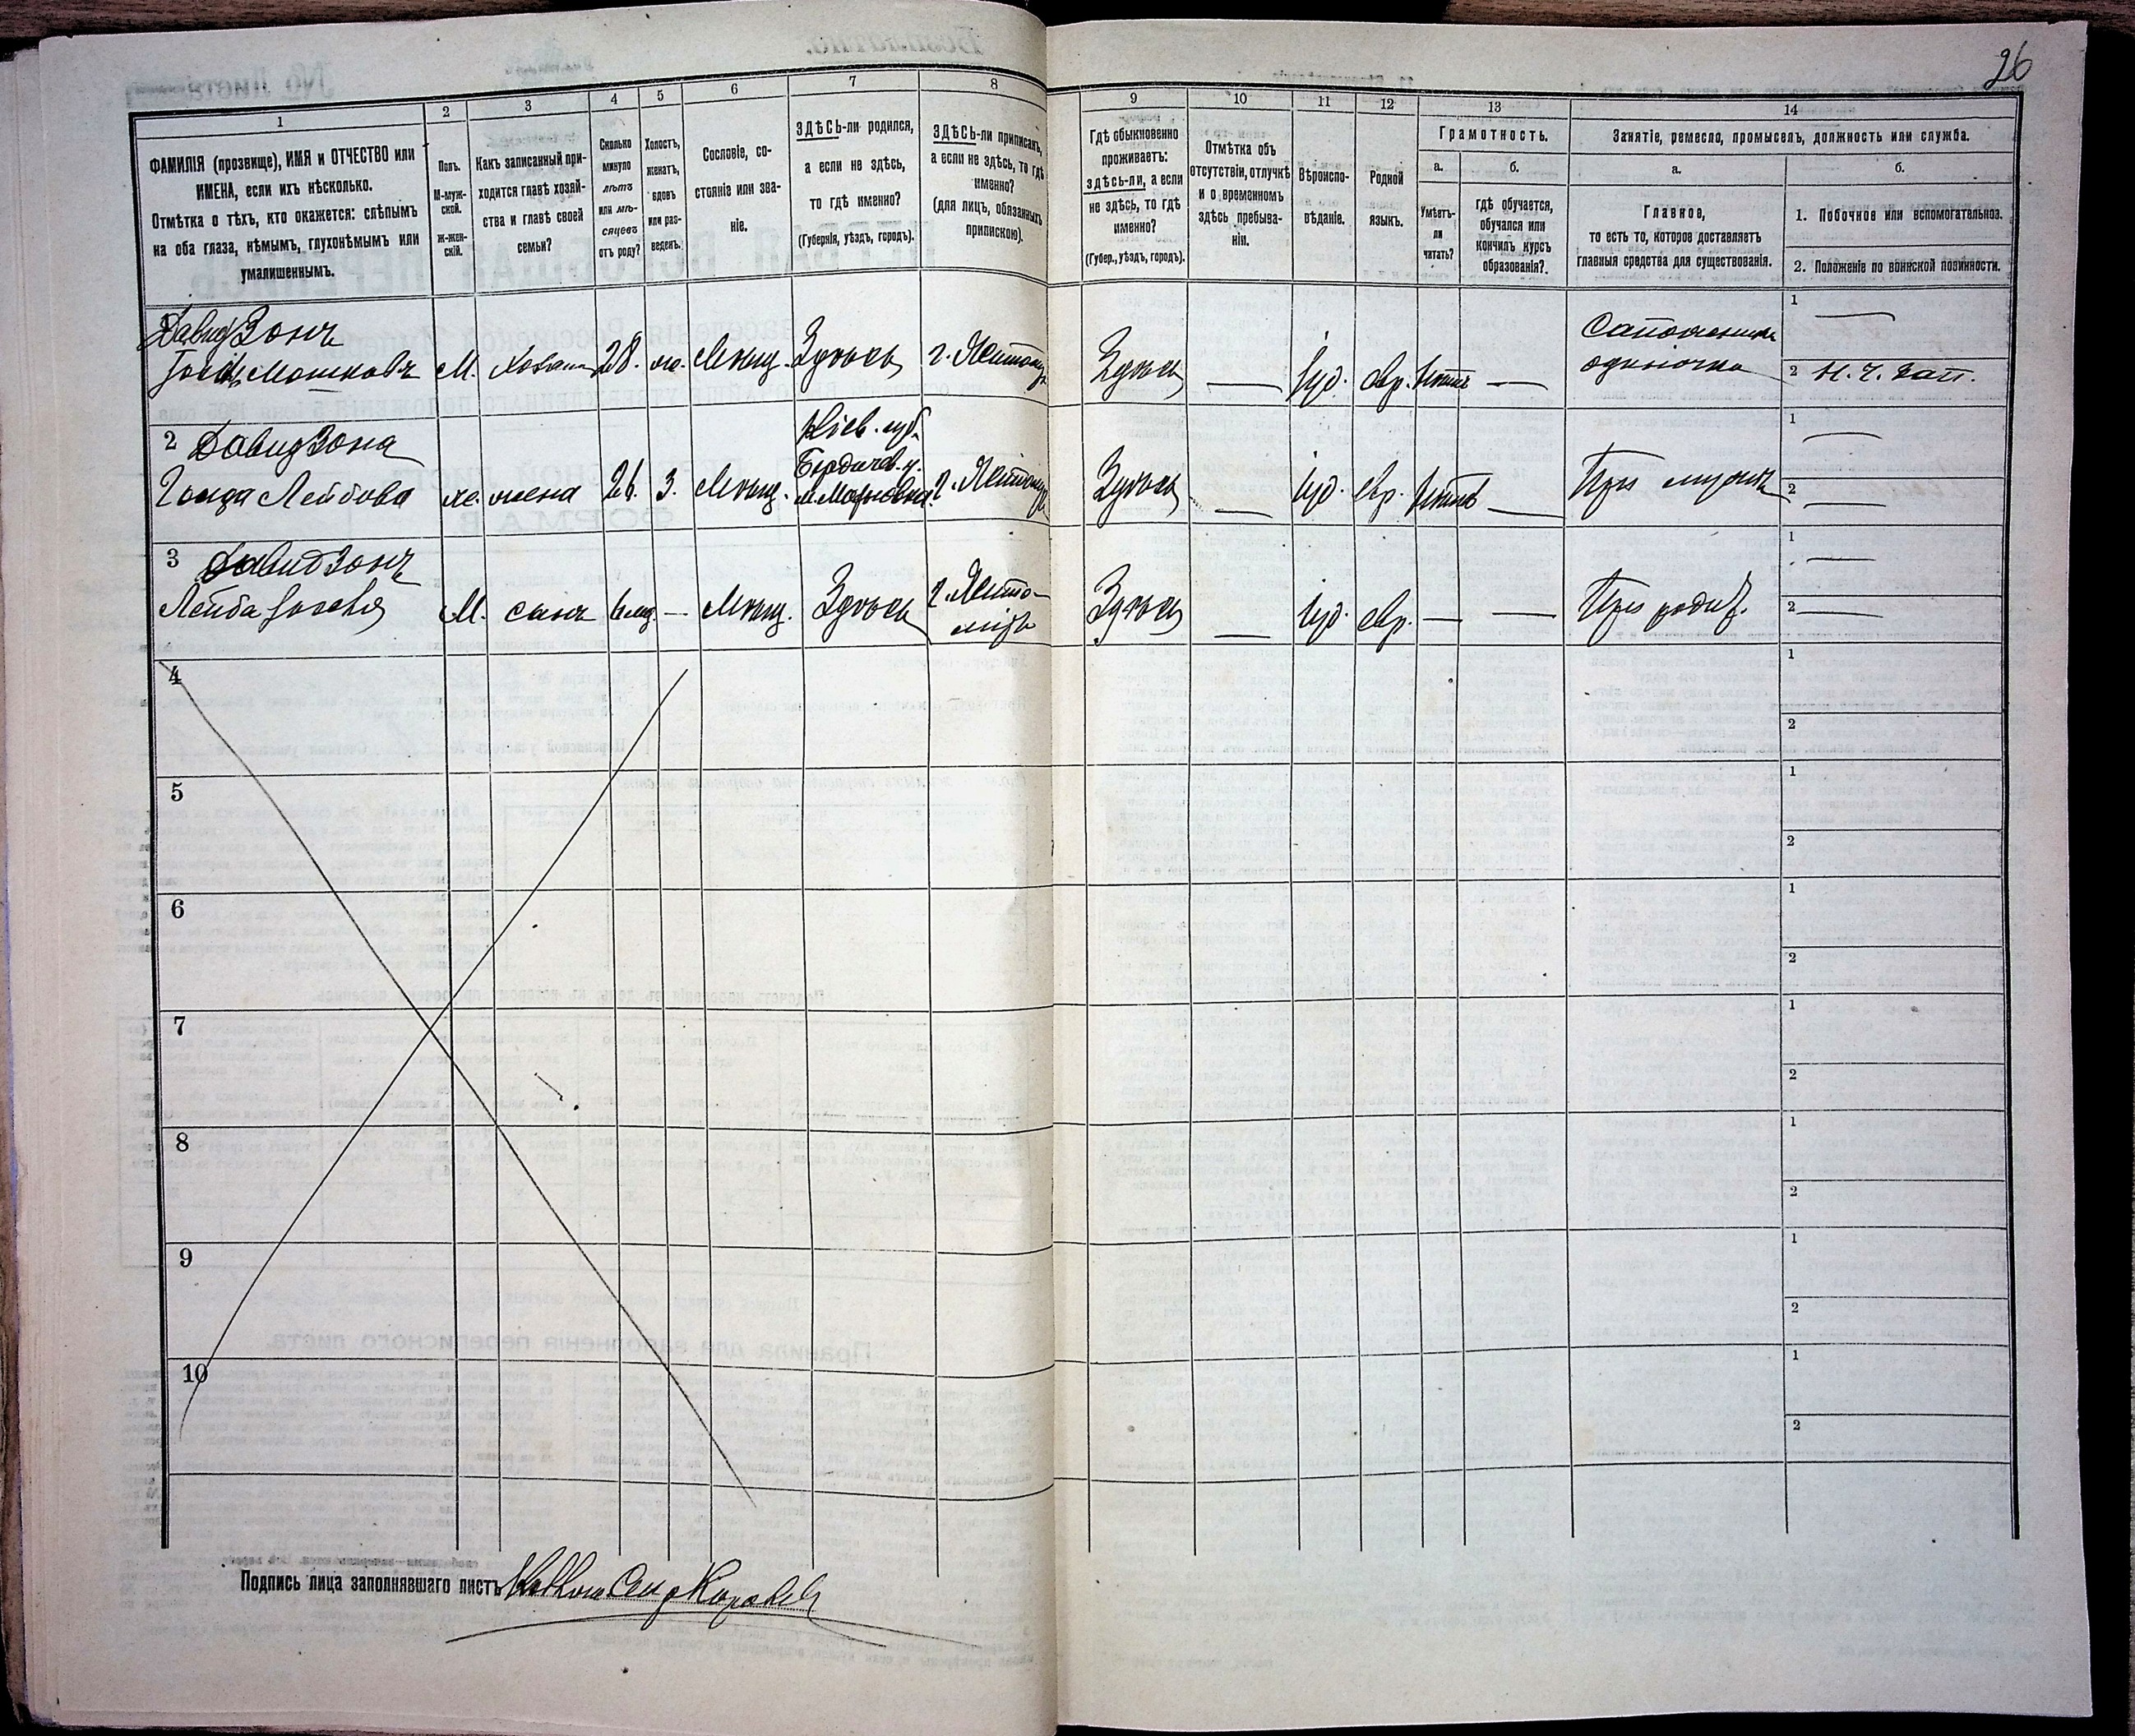 26
1
ФАМИЛІЯ (прозвище), ИМЯ и ОТЧЕСТВО или
ИМЕНА, если ихъ нѣсколько.
Отмѣтка о тѣхъ, кто окажется: слѣпымъ
на оба глаза, нѣмымъ, глухонѣмымъ или
умалишеннымъ.
2
Полъ.
М-муж-
ской.
ж-жен-
скій.
3
Какъ записанный при-
ходится главѣ хозяй-
ства и главѣ своей
семьи?
4
Сколько
минуло
лѣтъ
или мѣ-
сяцевъ
отъ роду?
5
Холостъ,
женатъ,
вдовъ
или раз-
веденъ.
6
Сословіе, со-
стояніе или зва-
ніе.
7
ЗДѢСЬ-ли родился,
а если не здѣсь,
то гдѣ именно?
(Губернія, уѣздъ, городъ).
8
ЗДѢСЬ-ли приписанъ,
а если не здѣсь, то гдѣ
именно?
(для лицъ, обязанныхъ
припискою).
9
Гдѣ обыкновенно
проживаетъ:
здѣсь-ли, а если
не здѣсь, то гдѣ
именно?
(Губер., уѣздъ, городъ).
10
Отмѣтка объ
отсутствіи, отлучкѣ
и о временномъ
здѣсь пребыва-
ніи.
11
Вѣроиспо-
вѣданіе.
12
Родной
языкъ.
13
Грамотность.
а.
Умѣетъ-
ли
читать?
б.
гдѣ обучается,
обучался или
кончилъ курсъ
образованія?
14
Занятіе, ремесло, промыселъ, должность или служба.
а.
Главное,
то есть то, которое доставляетъ
главныя средства для существованія.
б.
1. Побочное или вспомогательное.
2. Положеніе по воинской повинности.
1
ДавидЗонъ
Мошковъ М. Хозяин 28. ж. Мѣщ. Здѣсь г. Житомір
Здѣсь — Іуд. евр. —
Сапожникъ
одиночка
1 —
2 Н. Ч. Зап.
2 ДавидЗона
Лейбова ж. жена 26. З. Мѣщ.
Кіев. губ.
Бердичев. у.
г. Житомір
Здѣсь — Іуд. евр. — При мужѣ
1 —
2 —
3 ДавидЗонъ
Лейба М. сынъ 6 мѣс. — Мѣщ. Здѣсь г. Жито-
міръ
Здѣсь — Іуд. евр. — — При родит.
1 —
2 —
4
1
2
5
1
2
6
1
2
7
1
2
8
1
2
9
1
2
10
1
2
Подпись лица заполнявшаго листъ